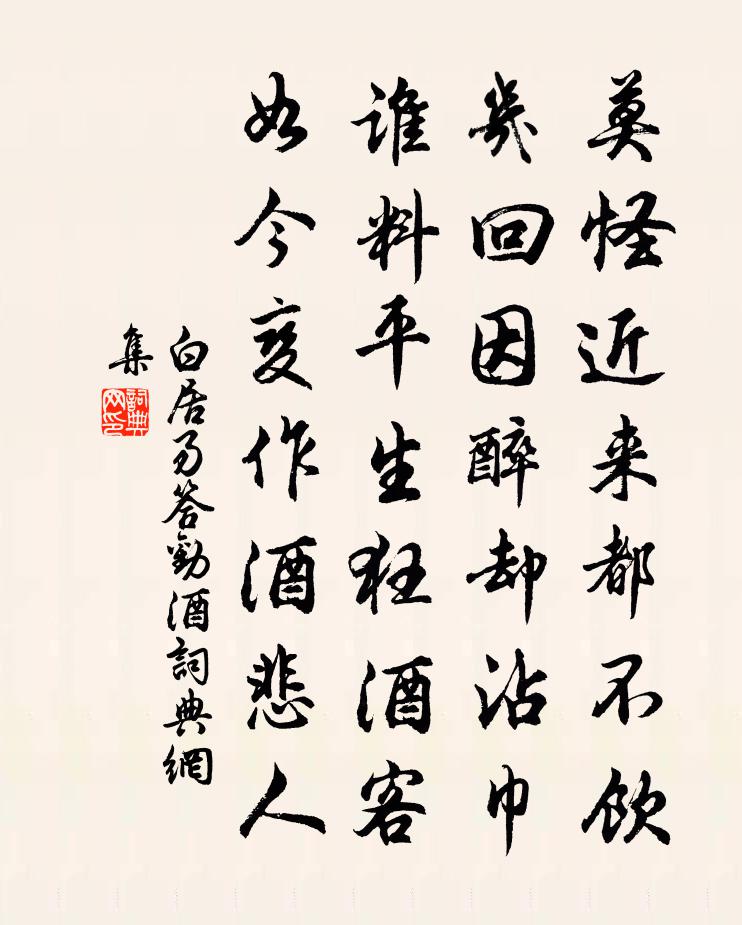 莫怪近来都不飲
幾回因醉却沾巾
誰料平生狂酒客
如今变作酒悲人
白居易答勸酒詞典網
集
詞典
网印